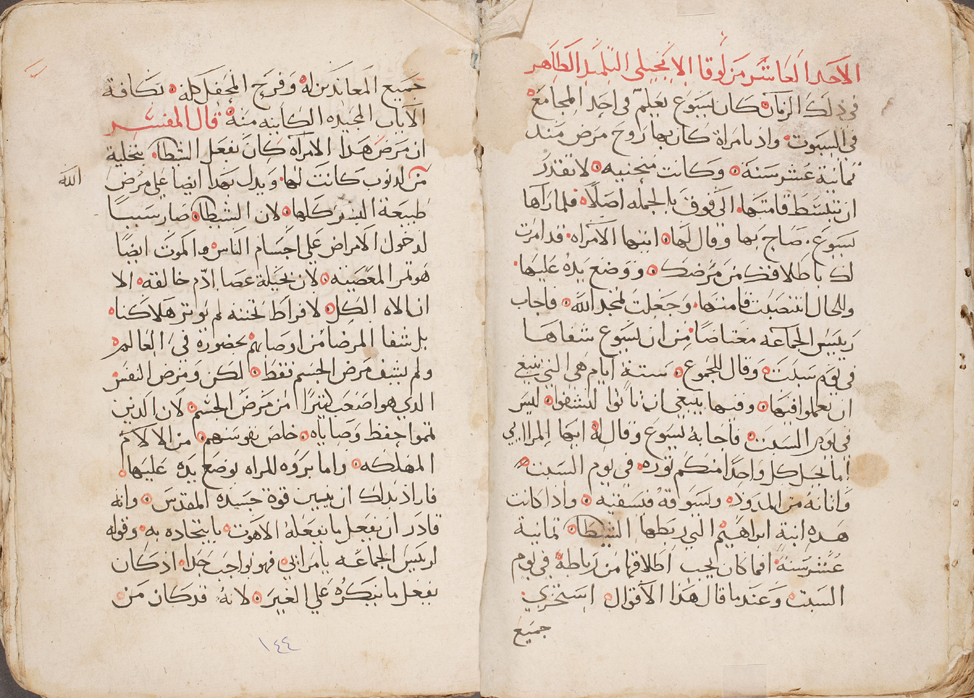 الاحد العاشر من لوقا الانجيلي التلميد الطاهر
في ذلك الزمان كان يسوع يعلم في احد المجامع
في السبوت واذ بامراة كان بها روح مرض مند
ثمانية عشر سنة وكانت منحنيه لا تقدر
ان تبسط قامتها الى فوق بالجمله اصلا فلما راها
يسوع صاح بها وقال لها ايتها الامراه قد امرت
لك باطلاقك من مرضك ووضع يده عليها
وللحال انتصبت قامتها وجعلت تمجد الله فاجاب
رييس الجماعه مغتاضا من ان يسوع شفاها
في يوم سبت وقال للجموع ستة ايام هي التي ينبغي
ان تعملوا فيها وفيها ينبغي ان تاتوا لتشفوا ليس
في يوم السبت فاجابه يسوع وقال له ايها المرايي
اما يحل كل واحدا منكم توره في يوم السبت
واتانه من المدود ويسوقه فيسقيه واذا كانت
هده ابنة ابراهيم التي ربطها الشيطان تمانية
عشر سنة افما كان يجب اطلاقها من رباطه في يوم
السبت وعندما قال هذا الاقوال استخزي
جميع
جميع المعاندين له وفرح المحفل كله بكافة
الايات المجيده الكاينه منه قال المفسر
ان مرض هدا الامراه كان بفعل الشيطان بتخلية
من لدنوب كانت لها ويدل بهدا ايضا على مرض
الله
طبيعة البشر كلها لان الشيطان صار سببا
لدخول الامراض على اجسام الناس والموت ايضا
هو تمر المعصيه لان بحيلة عصا ادم خالقه الا
ان الاه الكل لافراط تحننه لم يوتر هلاكنا
بل شفا المرضا من اوصابهم بحضوره في العالم
ولم يشف مرض الجسم فقط لكن ومرض النفس
الدي هو اصعب كتيرا من مرض الجسم لان الدين
تمموا حفظ وصاياه خلص نفوسهم من الالام
المهلكه واما بروه للمراه بوضع يده عليها
فاراد بدلك ان يبين قوة جسده المقدس وانه
قادر ان يفعل ما يفعله الاهوت باتحاده به وقوله
لرييس الجماعه يا مرايي فهو بواجب جدا اذ كان
يفعل ما ينكره علي الغير لانه قد كان من
١٤٤